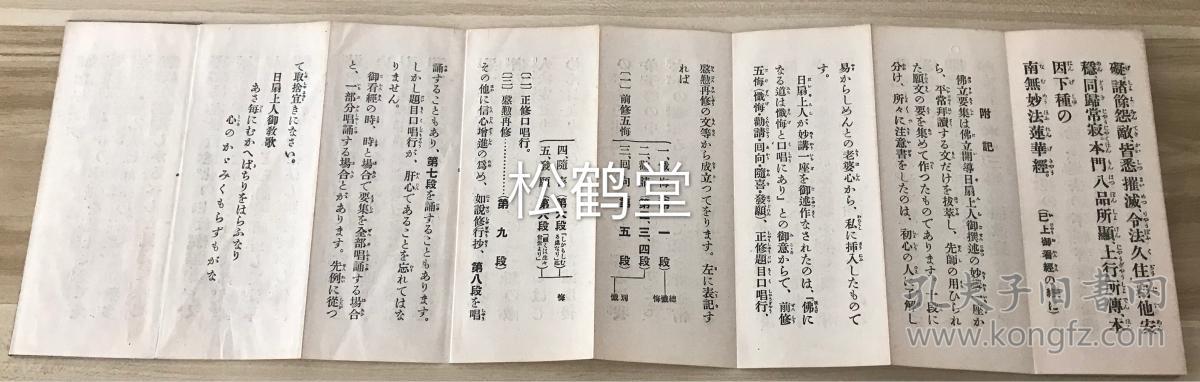 礙諸餘怨敵皆悉摧滅令法久住自他安
穩同歸常寂本門八品所顯上行所傳本
因下種の
南無妙法蓮華經。
(已上御看經の終)
附記
佛立要集は佛立開導日扇上人御撰述の妙講一座か
ら、平常拜讀する文だけを拔萃し、先師の用ひられ
た願文の要を集めて作つたものであります。段に
分け、所々に注意書をしたのは、初心の人に解し
易からしめんとの老婆心から、私に挿入したもので
す。
日扇上人が妙講一座を御述作なされたのは、「佛に
なる道は懺悔と口唱にあり」との御意からで、前修
五悔(懺悔・勸請・回向・隨喜・發願、正修題目口唱行、
慇懃再修の文等から成立つてをります。左に表記す
れば
(一)前修五悔
一、懺悔(第一段)
二、勸請(第二、三、四段)
三、回向(第五段)
四、隨喜(第六段
五、發願(第六段
總懺悔
別懺悔
(二)正修口唱行。
(三)慇懃再修…………(第九段)
その他に信心增進の爲め、如說修行抄、第八段を唱
誦することもあり、第七段を誦することもあります。
しかし題目口唱行が、肝心であることを忘れてはな
りません。
御看經の時、時と場合で要集を全部唱誦する場合
と、一部分唱誦する場合とがあります。先例に從つ
て取捨宜きになさい。
日扇上人御教歌
あさ每にむかへばちりをはらふなり
心のかゞみくもらずもがな
松鹤堂
孔夫子旧书网
kongfz.com